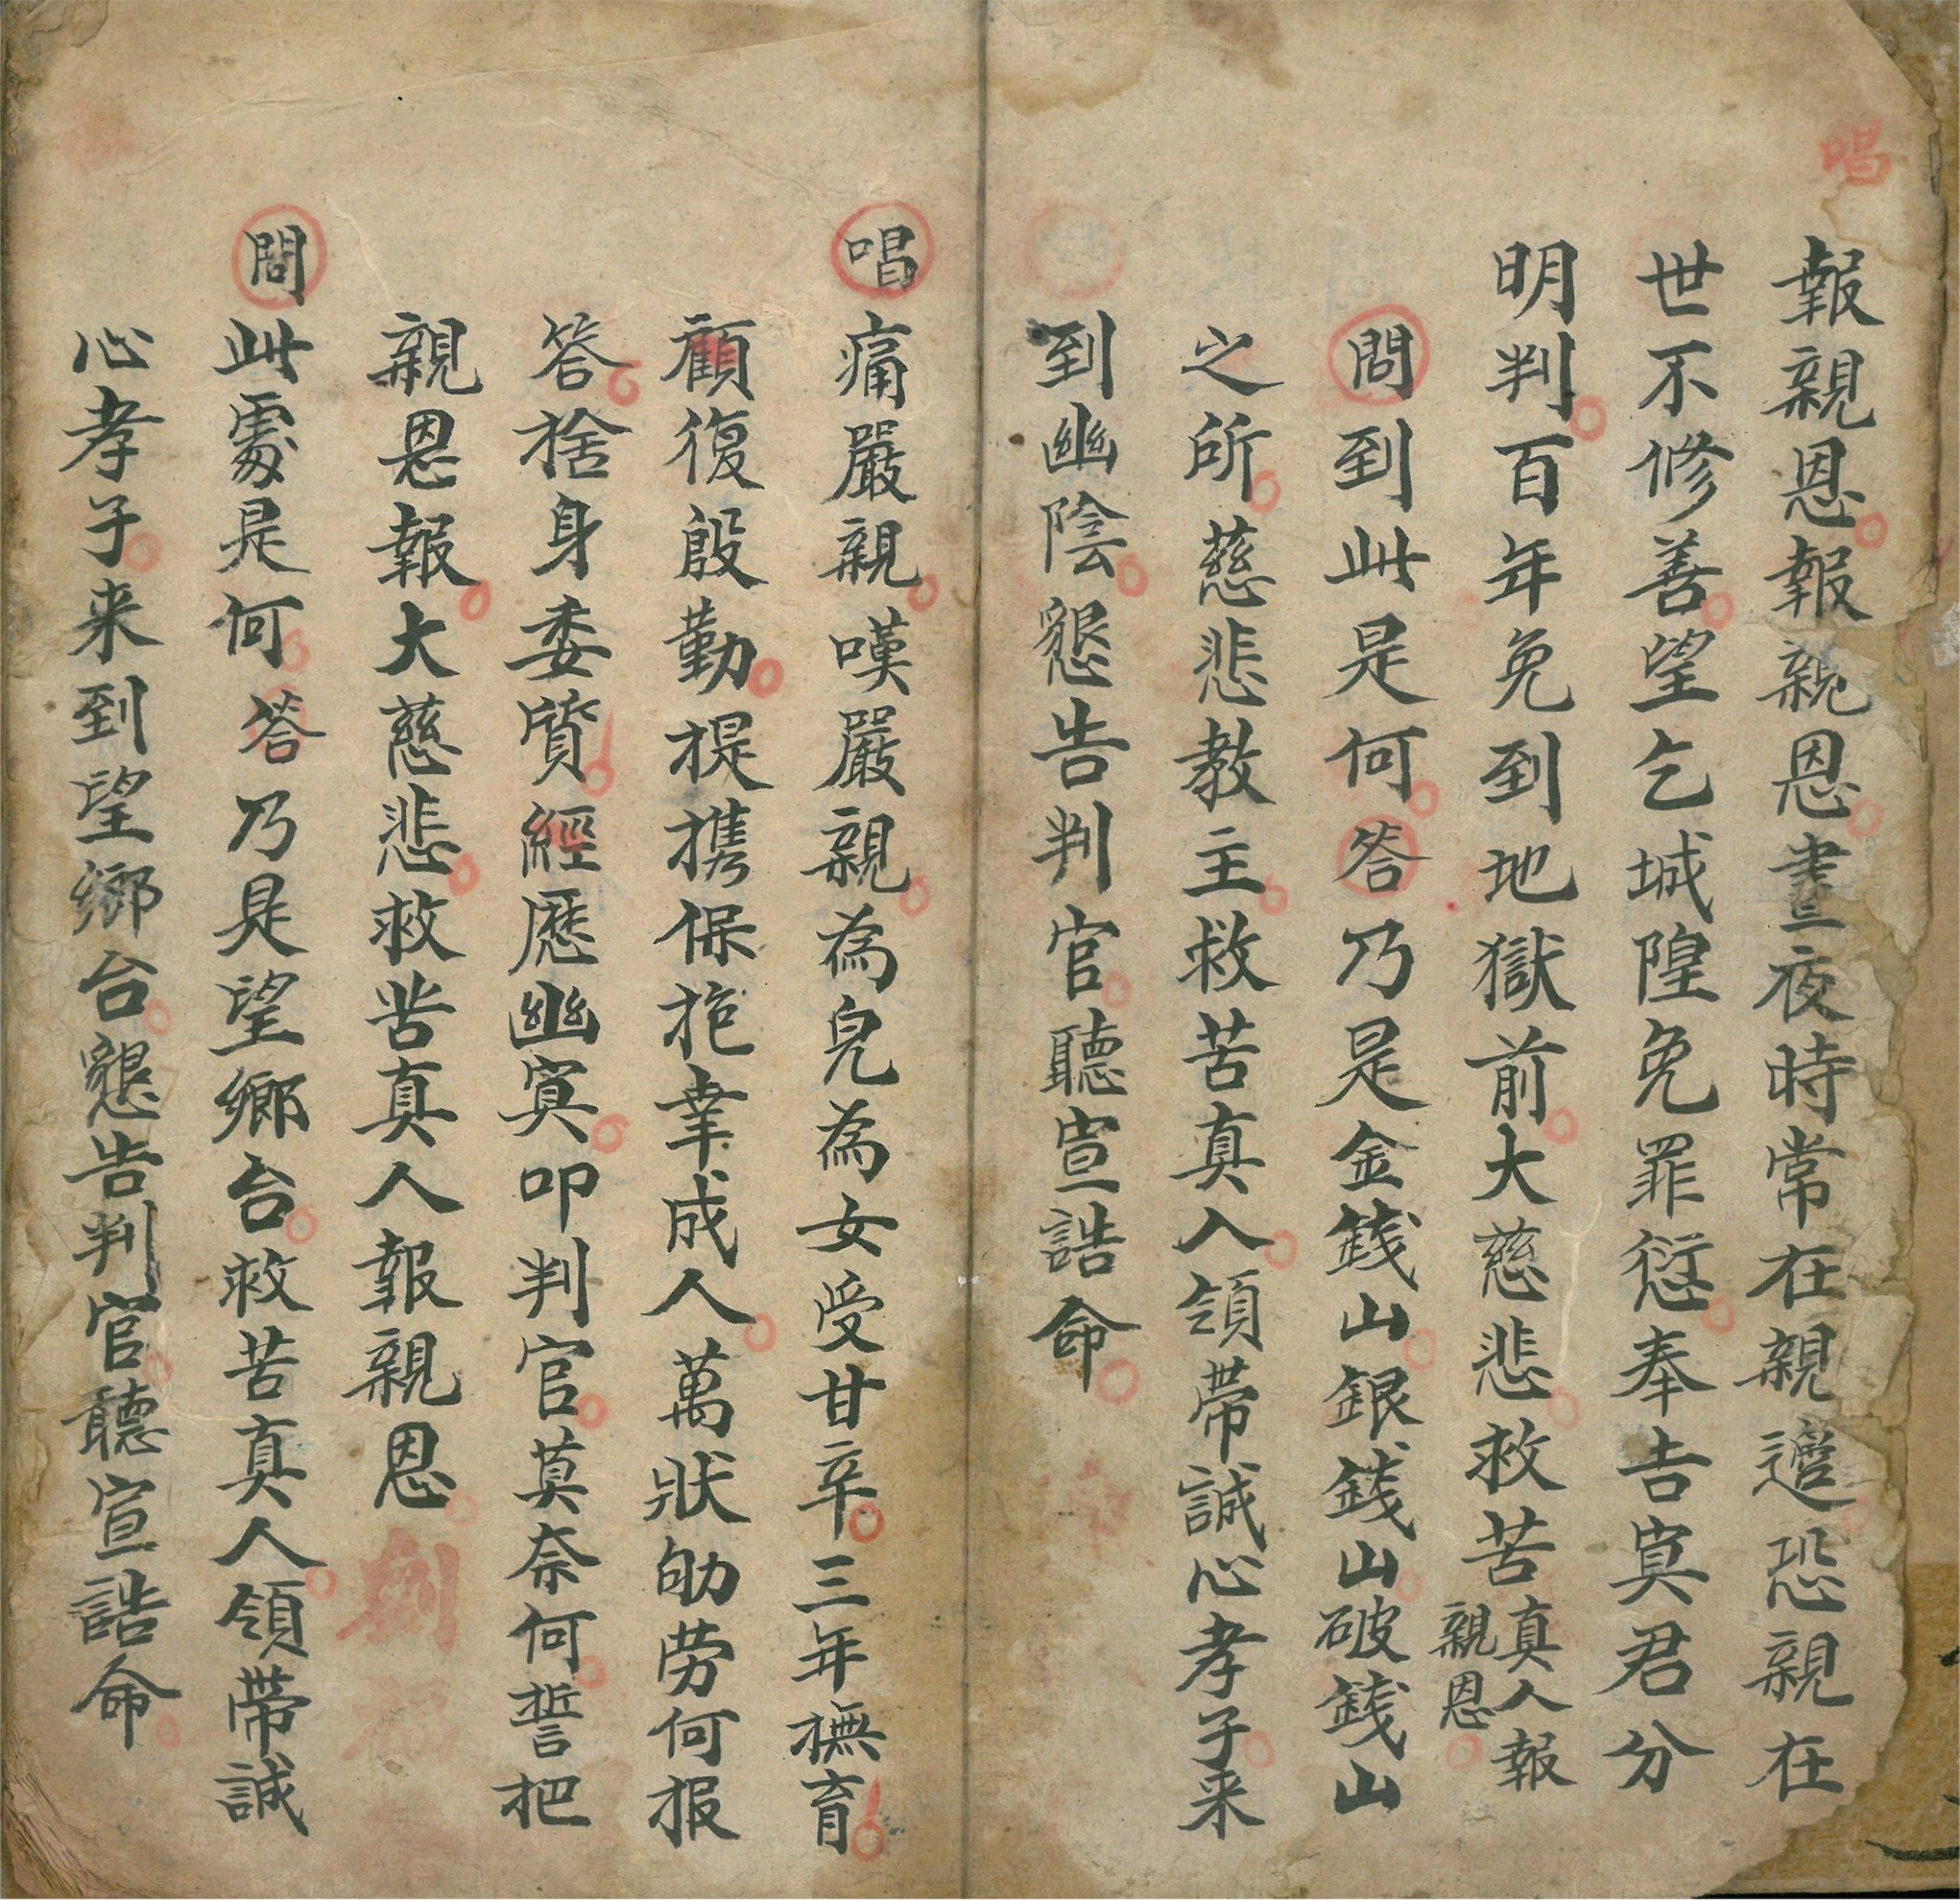 唱
報親恩報親恩晝夜時常在親邉恐親在
世不修善望乞城隍免罪愆奉告寘君分
明判百年免到地獄前大慈悲救苦真人報親恩
問到此是何答乃是金錢山銀錢山破錢山
之所慈悲教主救苦真人領帶誠心孝子来
到幽陰懇告判官聽宣誥命
唱痛嚴親嘆嚴親為兒為女受甘辛三年撫育
顧復殷勤提携保抱幸成人萬狀劬劳何报
答捨身委質經歷幽寘叩判官莫奈何誓把
親恩報大慈悲救苦真人報親恩
問此處是何答乃是望鄉台救苦真人領帶誠
心孝子来到望鄉台懇告判官聽宣誥命